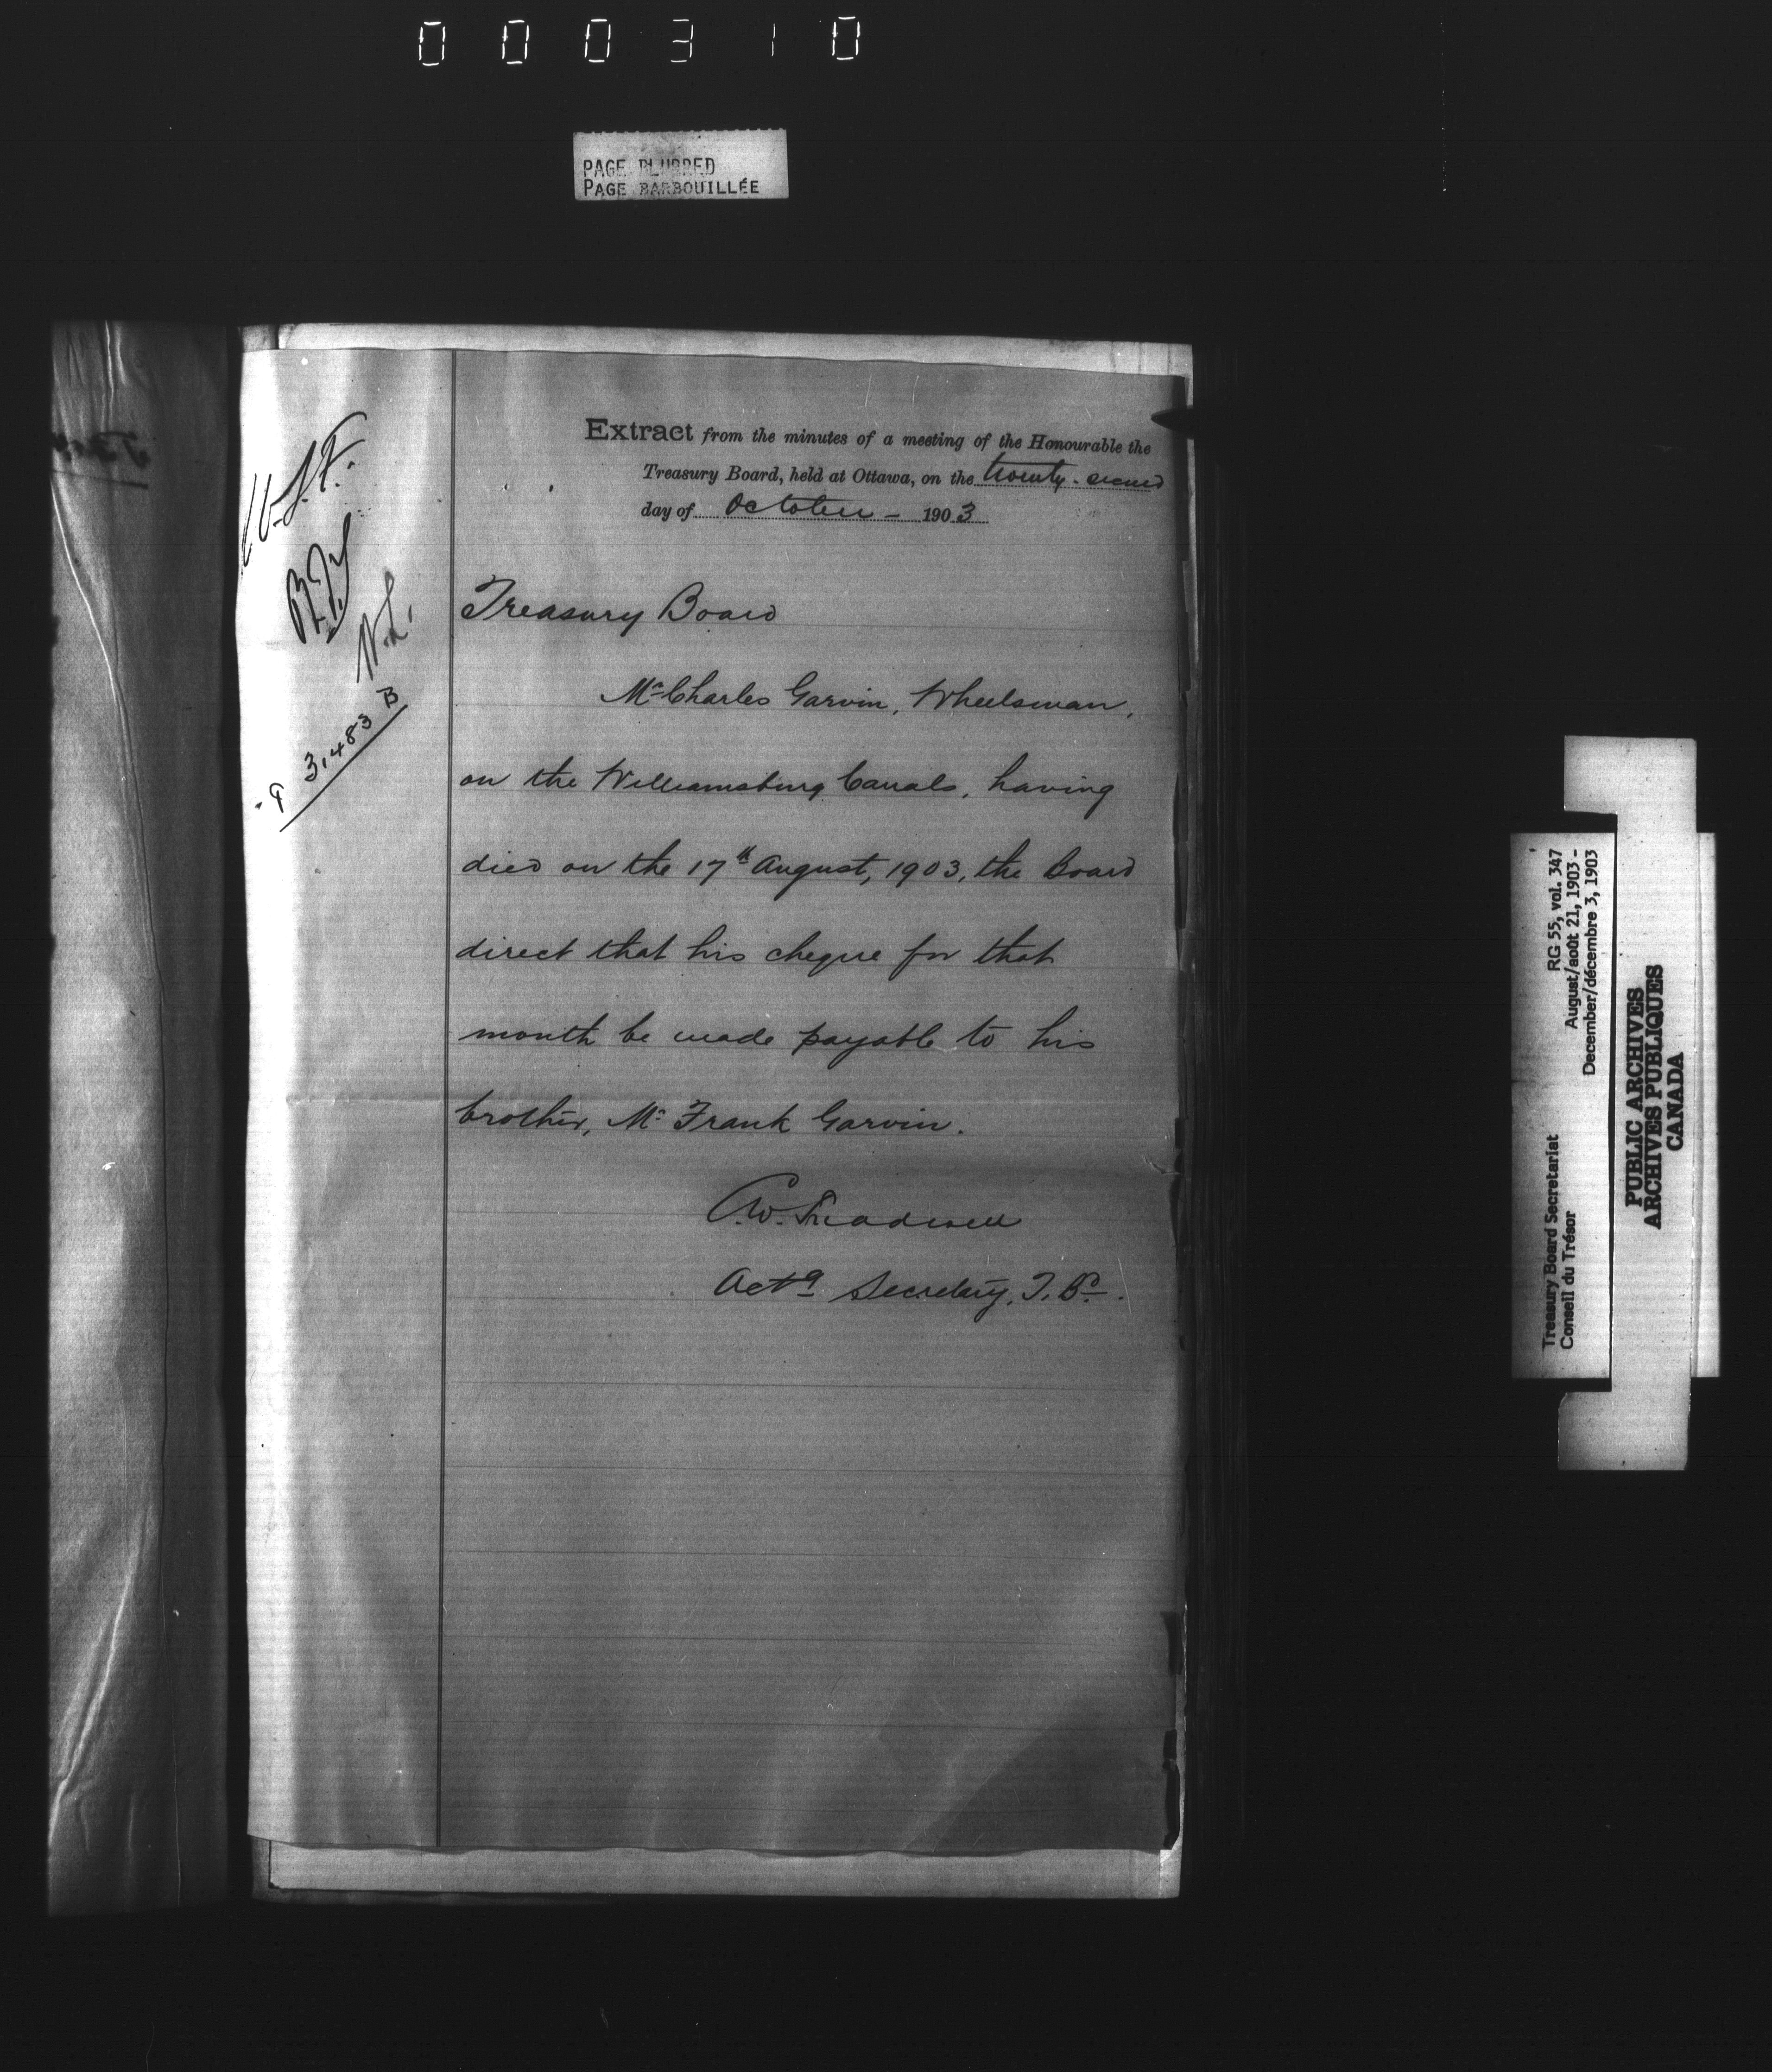 000310
PAGE BLURRED
PAGE BARBOUILLÉE
Extract from the minutes of a meeting of the Honourable the
Treasury Board, held at Ottawa, on the twenty-second
day of October - 1903
W.S.F.
N.L.
3,483 B
Treasury Board
Mr Charles Garvin, Wheelsman,
on the Williamsburg Canals, having
died on the 17th August, 1903, the Board
direct that his cheque for that
month be made payable to his
brother, Mr Frank Garvin.
C.W. Treadwell
Actg Secretary, T. Bd.
Treasury Board Secretariat RG 55, vol. 347
Conseil du Trésor August/août 21, 1903 -
December/décembre 3, 1903
PUBLIC ARCHIVES
ARCHIVES PUBLIQUES
CANADA